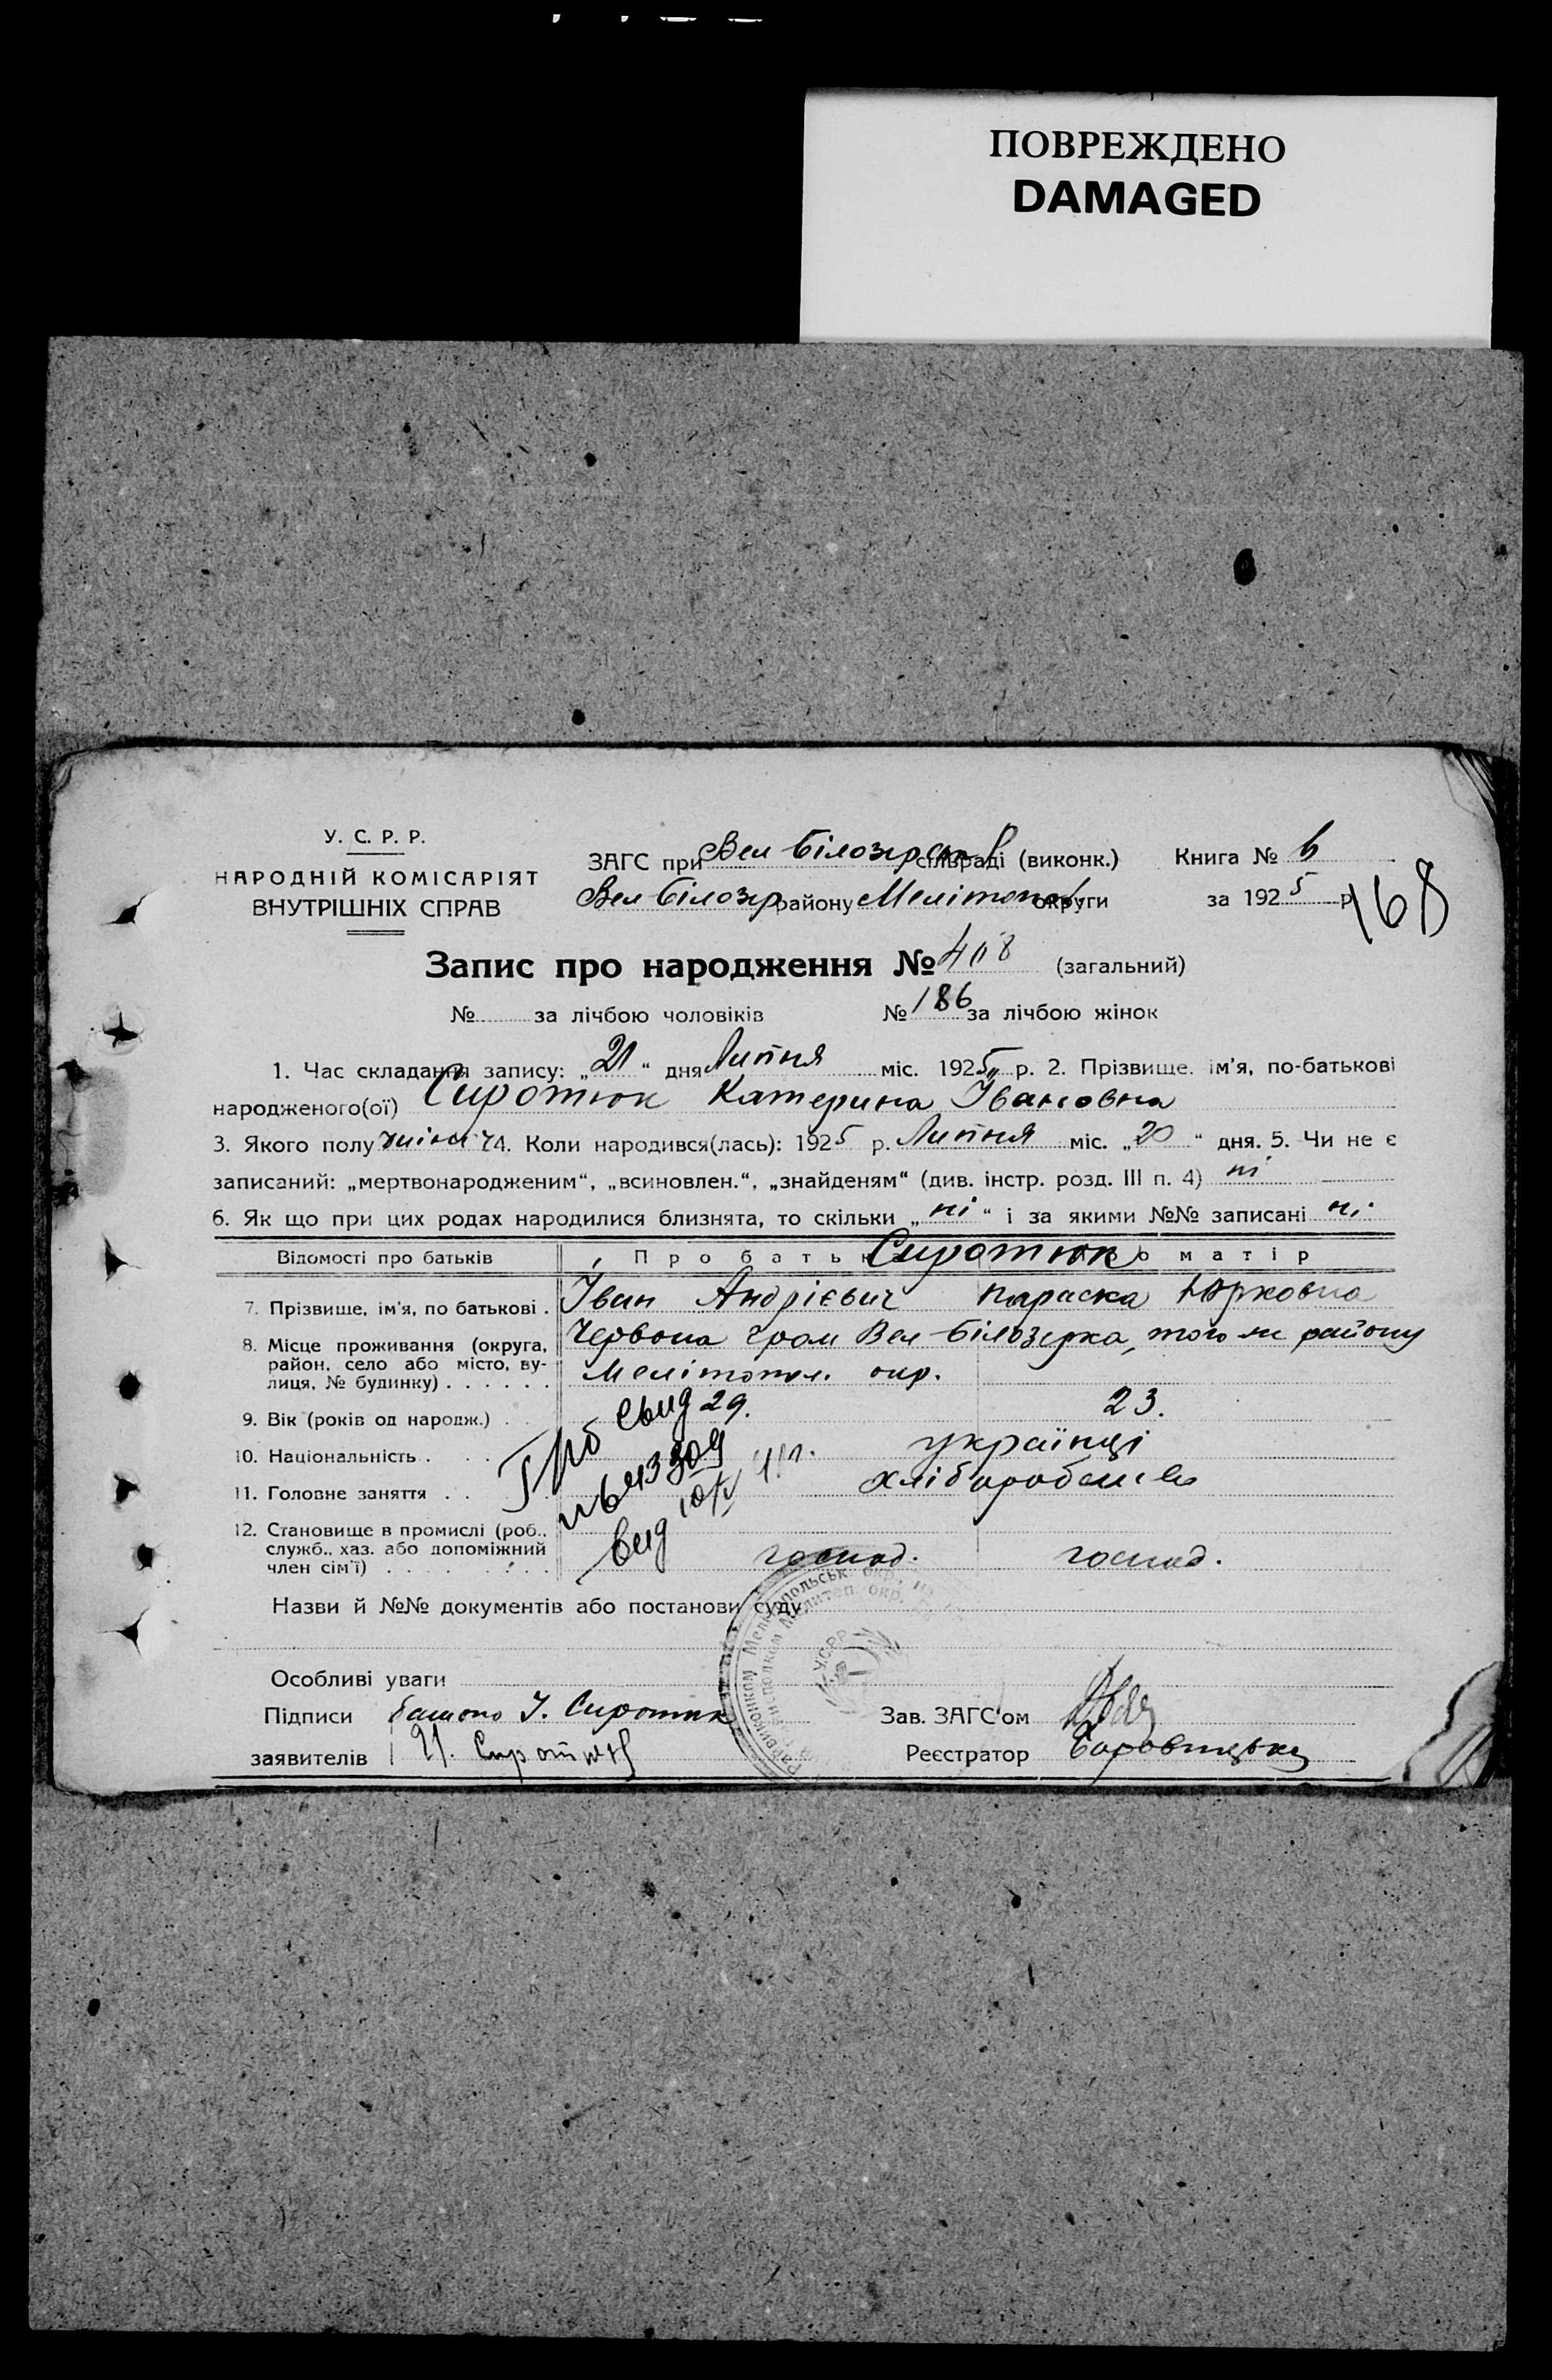 ПОВРЕЖДЕНО
DAMAGED
У. С. Р. Р.
НАРОДНІЙ КОМІСАРІЯТ
ВНУТРІШНІХ СПРАВ
ЗАГС при Вел Білозерськ сільраді (виконк.) Книга № 6
Вел Білозер району Мелітопол округи за 1925 р.
168
Запис про народження № 408 (загальний)
№ за лічбою чоловіків № 186 за лічбою жінок
1. Час складання запису: „21“ дня Липня міс. 1925 р. 2. Прізвище. ім'я, по-батькові
народженого(ої) Сиротюк Катерина Івановна
3. Якого полу жіноч 4. Коли народився(лась): 1925 р. Липня міс. „20“ дня. 5. Чи не є
записаний: „мертвонародженим“, „всиновлен.“, „знайденям“ (див. інстр. розд. III п. 4) ні
6. Як що при цих родах народилися близнята, то скільки „ні“ і за якими №№ записані ні
Відомості про батьків Про батьк Сиротюк матір
7. Прізвище, ім'я, по батькові . Іван Андрієвич Параска Юрковна
8. Місце проживання (округа, район, село або місто, вулиця, № будинку) . . . . . . Червона гром Вел-Білозерка, того ж району
Мелітопол. окр.
9. Вік (років од народж.) . 29. 23.
10. Національність . . . українці
11. Головне заняття . . хлібороб
12. Становище в промислі (роб., служб., хаз. або допоміжний член сім'ї) . . . . . . . госпад. госпад.
свид
№
вид 10/IV 41 г.
Назви й №№ документів або постанови суду
Особливі уваги
Підписи батько І. Сиротюк Зав. ЗАГС'ом
заявителів І. Сиротюк Реєстратор